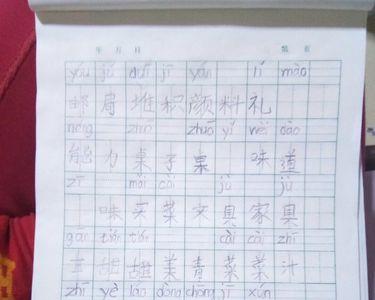 年 月 日 第 页
yóu jú duī jī yán lǐ mào
邮 局 堆 积 颜 料 礼
néng zhuō zhuō yǐ wèi dào
能 力 桌 子 桌 味 道
zī mǎi cài jù jù
味 买 菜 文 具 家 具
gān tián tián cài cài zhī
甜 甜 美 青 菜 菜 汁
zhī yè láo dòng chóng jī xún